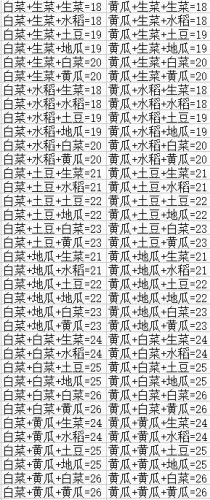 白菜+生菜+生菜=18 黄瓜+生菜+生菜=18
白菜+生菜+水稻=18 黄瓜+生菜+水稻=18
白菜+生菜+土豆=19 黄瓜+生菜+土豆=19
白菜+生菜+地瓜=19 黄瓜+生菜+地瓜=19
白菜+生菜+白菜=20 黄瓜+生菜+白菜=20
白菜+生菜+黄瓜=20 黄瓜+生菜+黄瓜=20
白菜+水稻+生菜=18 黄瓜+水稻+生菜=18
白菜+水稻+水稻=18 黄瓜+水稻+水稻=18
白菜+水稻+土豆=19 黄瓜+水稻+土豆=19
白菜+水稻+地瓜=19 黄瓜+水稻+地瓜=19
白菜+水稻+白菜=20 黄瓜+水稻+白菜=20
白菜+水稻+黄瓜=20 黄瓜+水稻+黄瓜=20
白菜+土豆+生菜=21 黄瓜+土豆+生菜=21
白菜+土豆+水稻=21 黄瓜+土豆+水稻=21
白菜+土豆+土豆=22 黄瓜+土豆+土豆=22
白菜+土豆+地瓜=22 黄瓜+土豆+地瓜=22
白菜+土豆+白菜=23 黄瓜+土豆+白菜=23
白菜+土豆+黄瓜=23 黄瓜+土豆+黄瓜=23
白菜+地瓜+生菜=21 黄瓜+地瓜+生菜=21
白菜+地瓜+水稻=21 黄瓜+地瓜+水稻=21
白菜+地瓜+土豆=22 黄瓜+地瓜+土豆=22
白菜+地瓜+地瓜=22 黄瓜+地瓜+地瓜=22
白菜+地瓜+白菜=23 黄瓜+地瓜+白菜=23
白菜+地瓜+黄瓜=23 黄瓜+地瓜+黄瓜=23
白菜+白菜+生菜=24 黄瓜+白菜+生菜=24
白菜+白菜+水稻=24 黄瓜+白菜+水稻=24
白菜+白菜+土豆=25 黄瓜+白菜+土豆=25
白菜+白菜+地瓜=25 黄瓜+白菜+地瓜=25
白菜+白菜+白菜=26 黄瓜+白菜+白菜=26
白菜+白菜+黄瓜=26 黄瓜+白菜+黄瓜=26
白菜+黄瓜+生菜=24 黄瓜+黄瓜+生菜=24
白菜+黄瓜+水稻=24 黄瓜+黄瓜+水稻=24
白菜+黄瓜+土豆=25 黄瓜+黄瓜+土豆=25
白菜+黄瓜+地瓜=25 黄瓜+黄瓜+地瓜=25
白菜+黄瓜+白菜=26 黄瓜+黄瓜+白菜=26
白菜+黄瓜+黄瓜=26 黄瓜+黄瓜+黄瓜=26